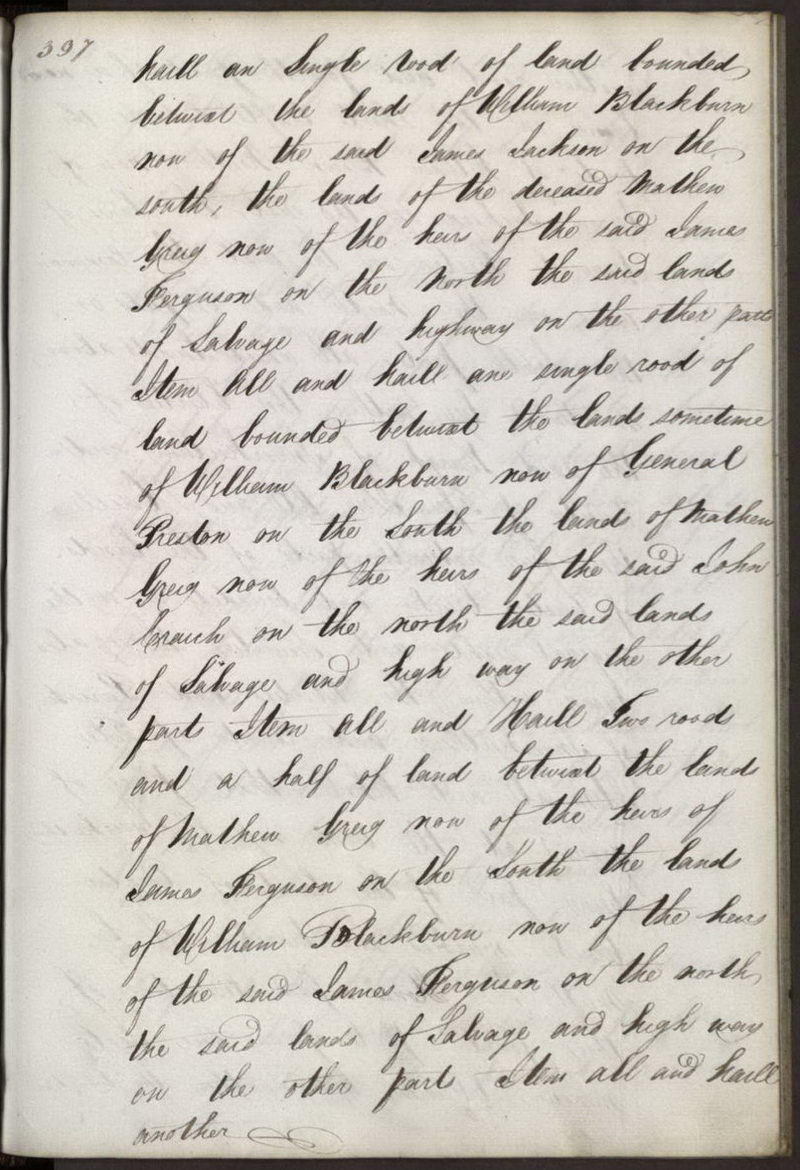 397
haill an Single rood of land bounded
betwixt the lands of William Blackburn
now of the said James Jackson on the
south, the lands of the deceased Mathew
Greig now of the heirs of the said James
Ferguson on the North the said lands
of Salvage and highway on the other parts
Item All and haill ane single rood of
land bounded betwixt the lands sometime
of William Blackburn now of General
Preston on the South the lands of Mathew
Greig now of the heirs of the said John
on the north the said lands
of Salvage and high way on the other
parts Item All and Haill Two roods
and a half of land betwixt the lands
of Mathew Greig now of the heirs of
James Ferguson on the South the lands
of William Blackburn now of the heirs
of the said James Ferguson on the north
the said lands of Salvage and high way
on the other parts Item all and haill
another